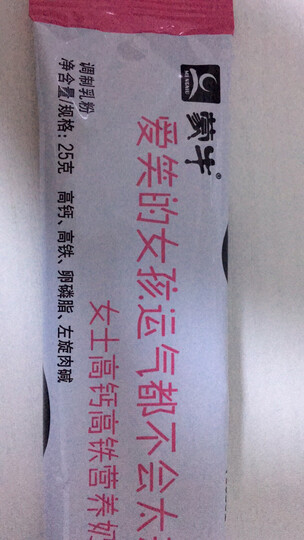 MENGNIU
蒙牛®
爱笑的女孩运气都不会太
女士高钙高铁营养奶
调制乳粉
净含量/规格：25克 高钙、高铁、卵磷脂、左旋肉碱